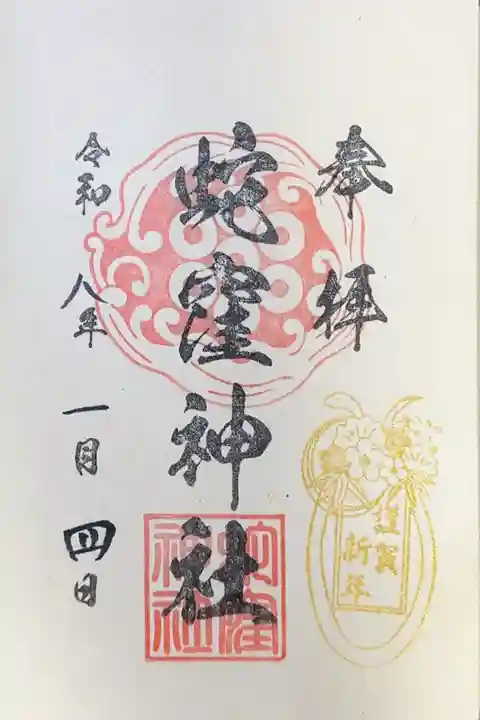 奉拝
蛇窪神社
令和八年一月四日
謹賀
新年
蛇窪
神社